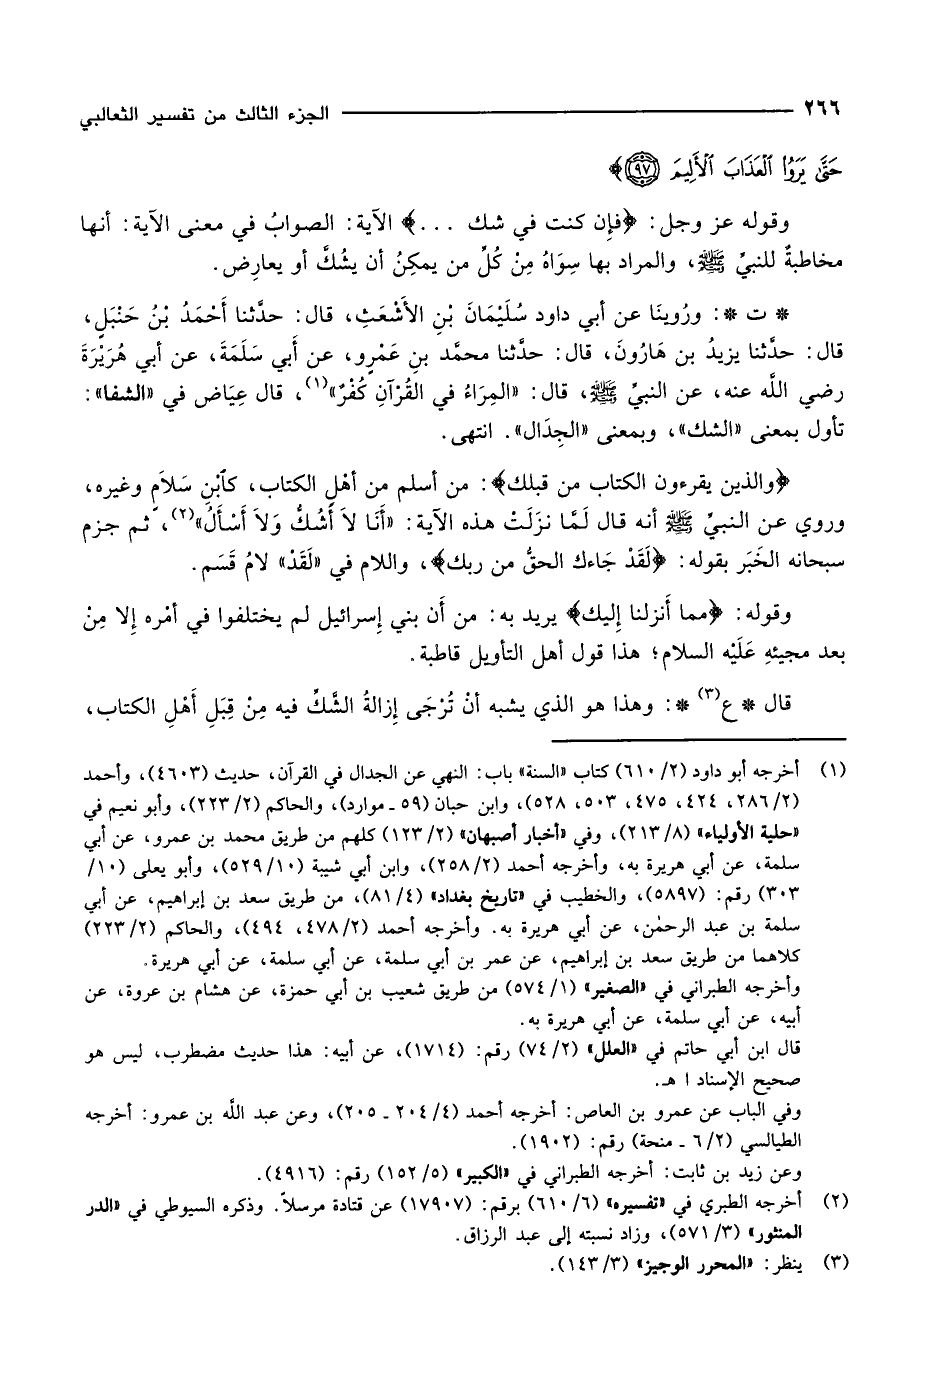 ٢٦٦ الجزء الثالث من تفسير الثعالبي
حَتَّىٰ يَرَوُا۟ ٱلْعَذَابَ ٱلْأَلِيمَ ﴿٩٧﴾﴾
وقوله عز وجل: ﴿فإِن كنت في شك ...﴾ الآية: الصوابُ في معنى الآية: أنها
مخاطبةٌ للنبيِّ ﷺ، والمراد بها سِوَاهُ مِنْ كُلِّ من يمكِنُ أن يشُكَّ أو يعارِض.
* ت *: ورُوينَا عن أبي داود سُلَيْمَانَ بْنِ الأَشْعَثِ، قال: حدَّثنا أَحْمَدُ بْنُ حَنْبَلٍ،
قال: حدَّثنا يزيدُ بن هَارُونَ، قال: حدَّثنا محمَّد بن عَمْرٍو، عن أَبي سَلَمَةَ، عن أبي هُرَيْرَةَ
رضي اللَّه عنه، عن النبيِّ ﷺ، قال: «المِرَاءُ في القُرْآنِ كُفْرٌ»(١)، قال عِيَاض في «الشفا»:
تأول بمعنى «الشك»، وبمعنى «الجِدَال». انتهى.
﴿والذين يقرءون الكتاب من قبلك﴾: من أسلم من أهْلِ الكتاب، كَٱبْنِ سَلاَمٍ وغيره،
وروي عن النبيِّ ﷺ أنه قال لَمَّا نزَلَتْ هذه الآية: «أَنَا لاَ أَشُكُّ وَلاَ أَسْأَلُ»(٢)، ثم جزم
سبحانه الخَبَر بقوله: ﴿لَقَدْ جَاءك الحقُّ من ربك﴾، واللام في «لَقَدْ» لامُ قَسَم.
وقوله: ﴿مما أَنزلنا إِليك﴾ يريد به: من أَن بني إِسرائيل لم يختلفوا في أمْره إِلا مِنْ
بعد مجيئهِ عَلَيْه السلام؛ هذا قول أهل التأويل قاطبة.
قال * ع(٣) *: وهذا هو الذي يشبه أنْ تُرْجَى إِزالةُ الشَّكِّ فيه مِنْ قِبَلِ أَهْلِ الكتاب،
(١) أخرجه أبو داود (٦١٠/٢) كتاب «السنة» باب: النهي عن الجدال في القرآن، حديث (٤٦٠٣)، وأحمد
(٢٨٦/٢، ٤٢٤، ٤٧٥، ٥٠٣، ٥٢٨)، وابن حبان (٥٩ ـ موارد)، والحاكم (٢٢٣/٢)، وأبو نعيم في
«حلية الأولياء» (٢١٣/٨)، وفي «أخبار أصبهان» (١٢٣/٢) كلهم من طريق محمد بن عمرو، عن أبي
سلمة، عن أبي هريرة به، وأخرجه أحمد (٢٥٨/٢)، وابن أبي شيبة (٥٢٩/١٠)، وأبو يعلى (١٠/
٣٠٣) رقم: (٥٨٩٧)، والخطيب في «تاريخ بغداد» (٨١/٤)، من طريق سعد بن إبراهيم، عن أبي
سلمة بن عبد الرحمٰن، عن أبي هريرة به. وأخرجه أحمد (٤٧٨/٢، ٤٩٤)، والحاكم (٢٢٣/٢)
كلاهما من طريق سعد بن إبراهيم، عن عمر بن أبي سلمة، عن أبي سلمة، عن أبي هريرة.
وأخرجه الطبراني في «الصغير» (٥٧٤/١) من طريق شعيب بن أبي حمزة، عن هشام بن عروة، عن
أبيه، عن أبي سلمة، عن أبي هريرة به.
قال ابن أبي حاتم في «العلل» (٧٤/٢) رقم: (١٧١٤)، عن أبيه: هذا حديث مضطرب، ليس هو
صحيح الإسناد ا هـ.
وفي الباب عن عمرو بن العاص: أخرجه أحمد (٢٠٤/٤ ـ ٢٠٥)، وعن عبد اللَّه بن عمرو: أخرجه
الطيالسي (٦/٢ ـ منحة) رقم: (١٩٠٢).
وعن زيد بن ثابت: أخرجه الطبراني في «الكبير» (١٥٢/٥) رقم: (٤٩١٦).
(٢) أخرجه الطبري في «تفسيره» (٦١٠/٦) برقم: (١٧٩٠٧) عن قتادة مرسلاً. وذكره السيوطي في «الدر
المنثور» (٥٧١/٣)، وزاد نسبته إلى عبد الرزاق.
(٣) ينظر: «المحرر الوجيز» (١٤٣/٣).